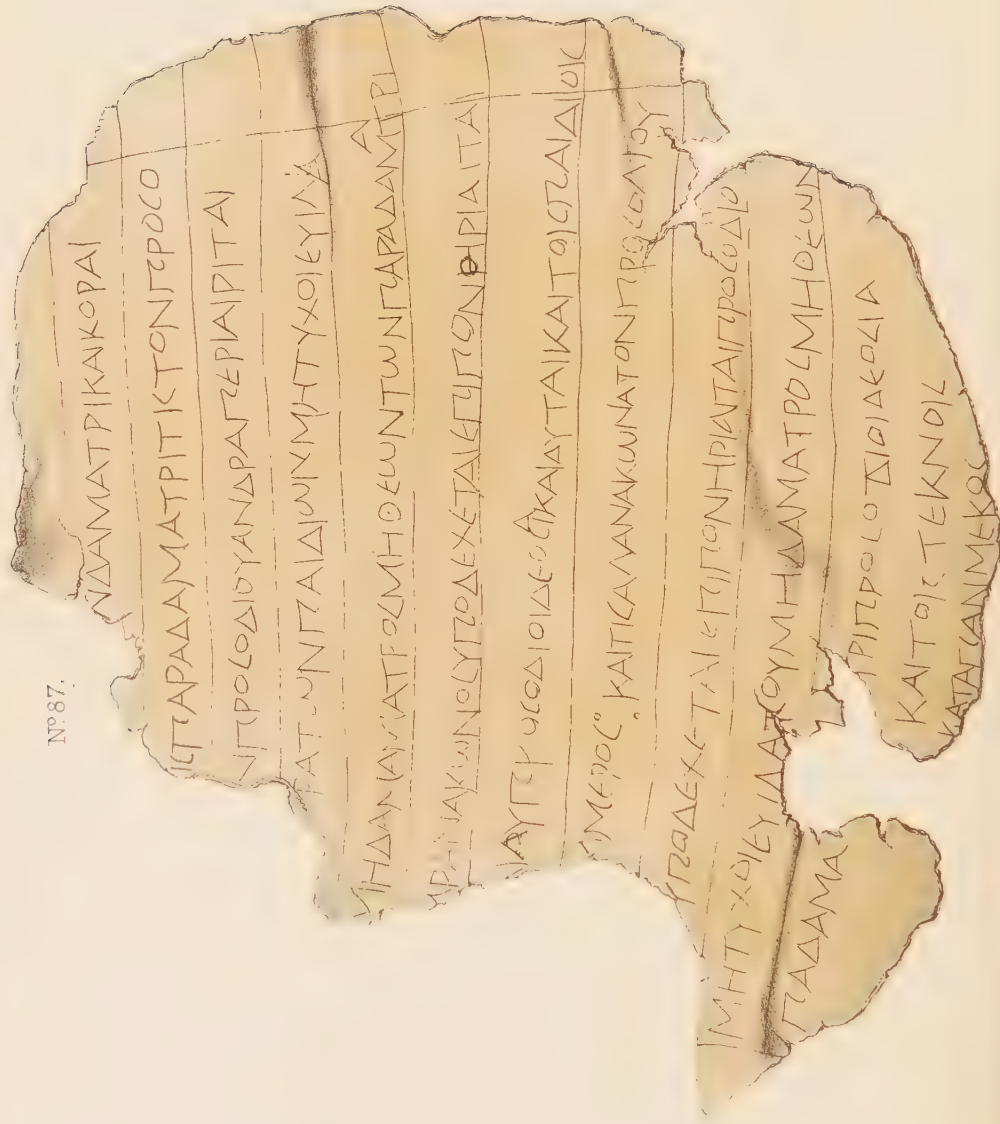 Nº 87.
ΝΔΑΜΑΤΡΙΚΑΙΚΟΡΑΙ
ΙCΠΑΡΑΔΑΜΑΤΡΙΤΙCΤΟΝΠΡΟCΟ
ΝΠΡΟCΟΔΙΟΥΑΝΔΡΑΠΕΡΙΑΙΡΙΤΑΙ
ΑΤΩΝΠΑΙΔΙΩΝΜΗΤΥΧΟΙΕΥΙΛΑ
ΜΗΔΑΜΑΜΑΤΡΟCΜΗΘΕΩΝΤΩΝΠΑΡΑΔΑΜΑΤΡΙ
ΑΡΑΝΑΚΩΝΟCΥΠΟΔΕΧΕΤΑΙΕΠΙΠΟΝΗΡΙΑΙΤΑ
ΝΑΥΠΡΟCΟΔΙΟΙΔΕΟCΑΚΑΙΑΥΤΑΙΚΑΙΤΟΙCΠΑΙΔΙΟΙC
ΜΕΡΟC ΚΑΙΤΙCΑΛΛΑΝΑΚΩΝΑΤΟΝΠΡΟCΟΔΙΟΥ
ΥΠΟΔΕΧΕΤΑΙΕΠΙΠΟΝΗΡΙΑΙΤΑΙΠΡΟCΟΔΙΟ
ΜΗΤΥΧΟΙΕΥΙΛΑΤΟΥΜΗΔΑΜΑΤΡΟCΜΗΘΕΩΝ
ΠΑΔΑΜΑ ΡΙΠΡΟCΟΔΙΟΙΔΕΟCΙΑ
ΚΑΙΤΟΙCΤΕΚΝΟΙC